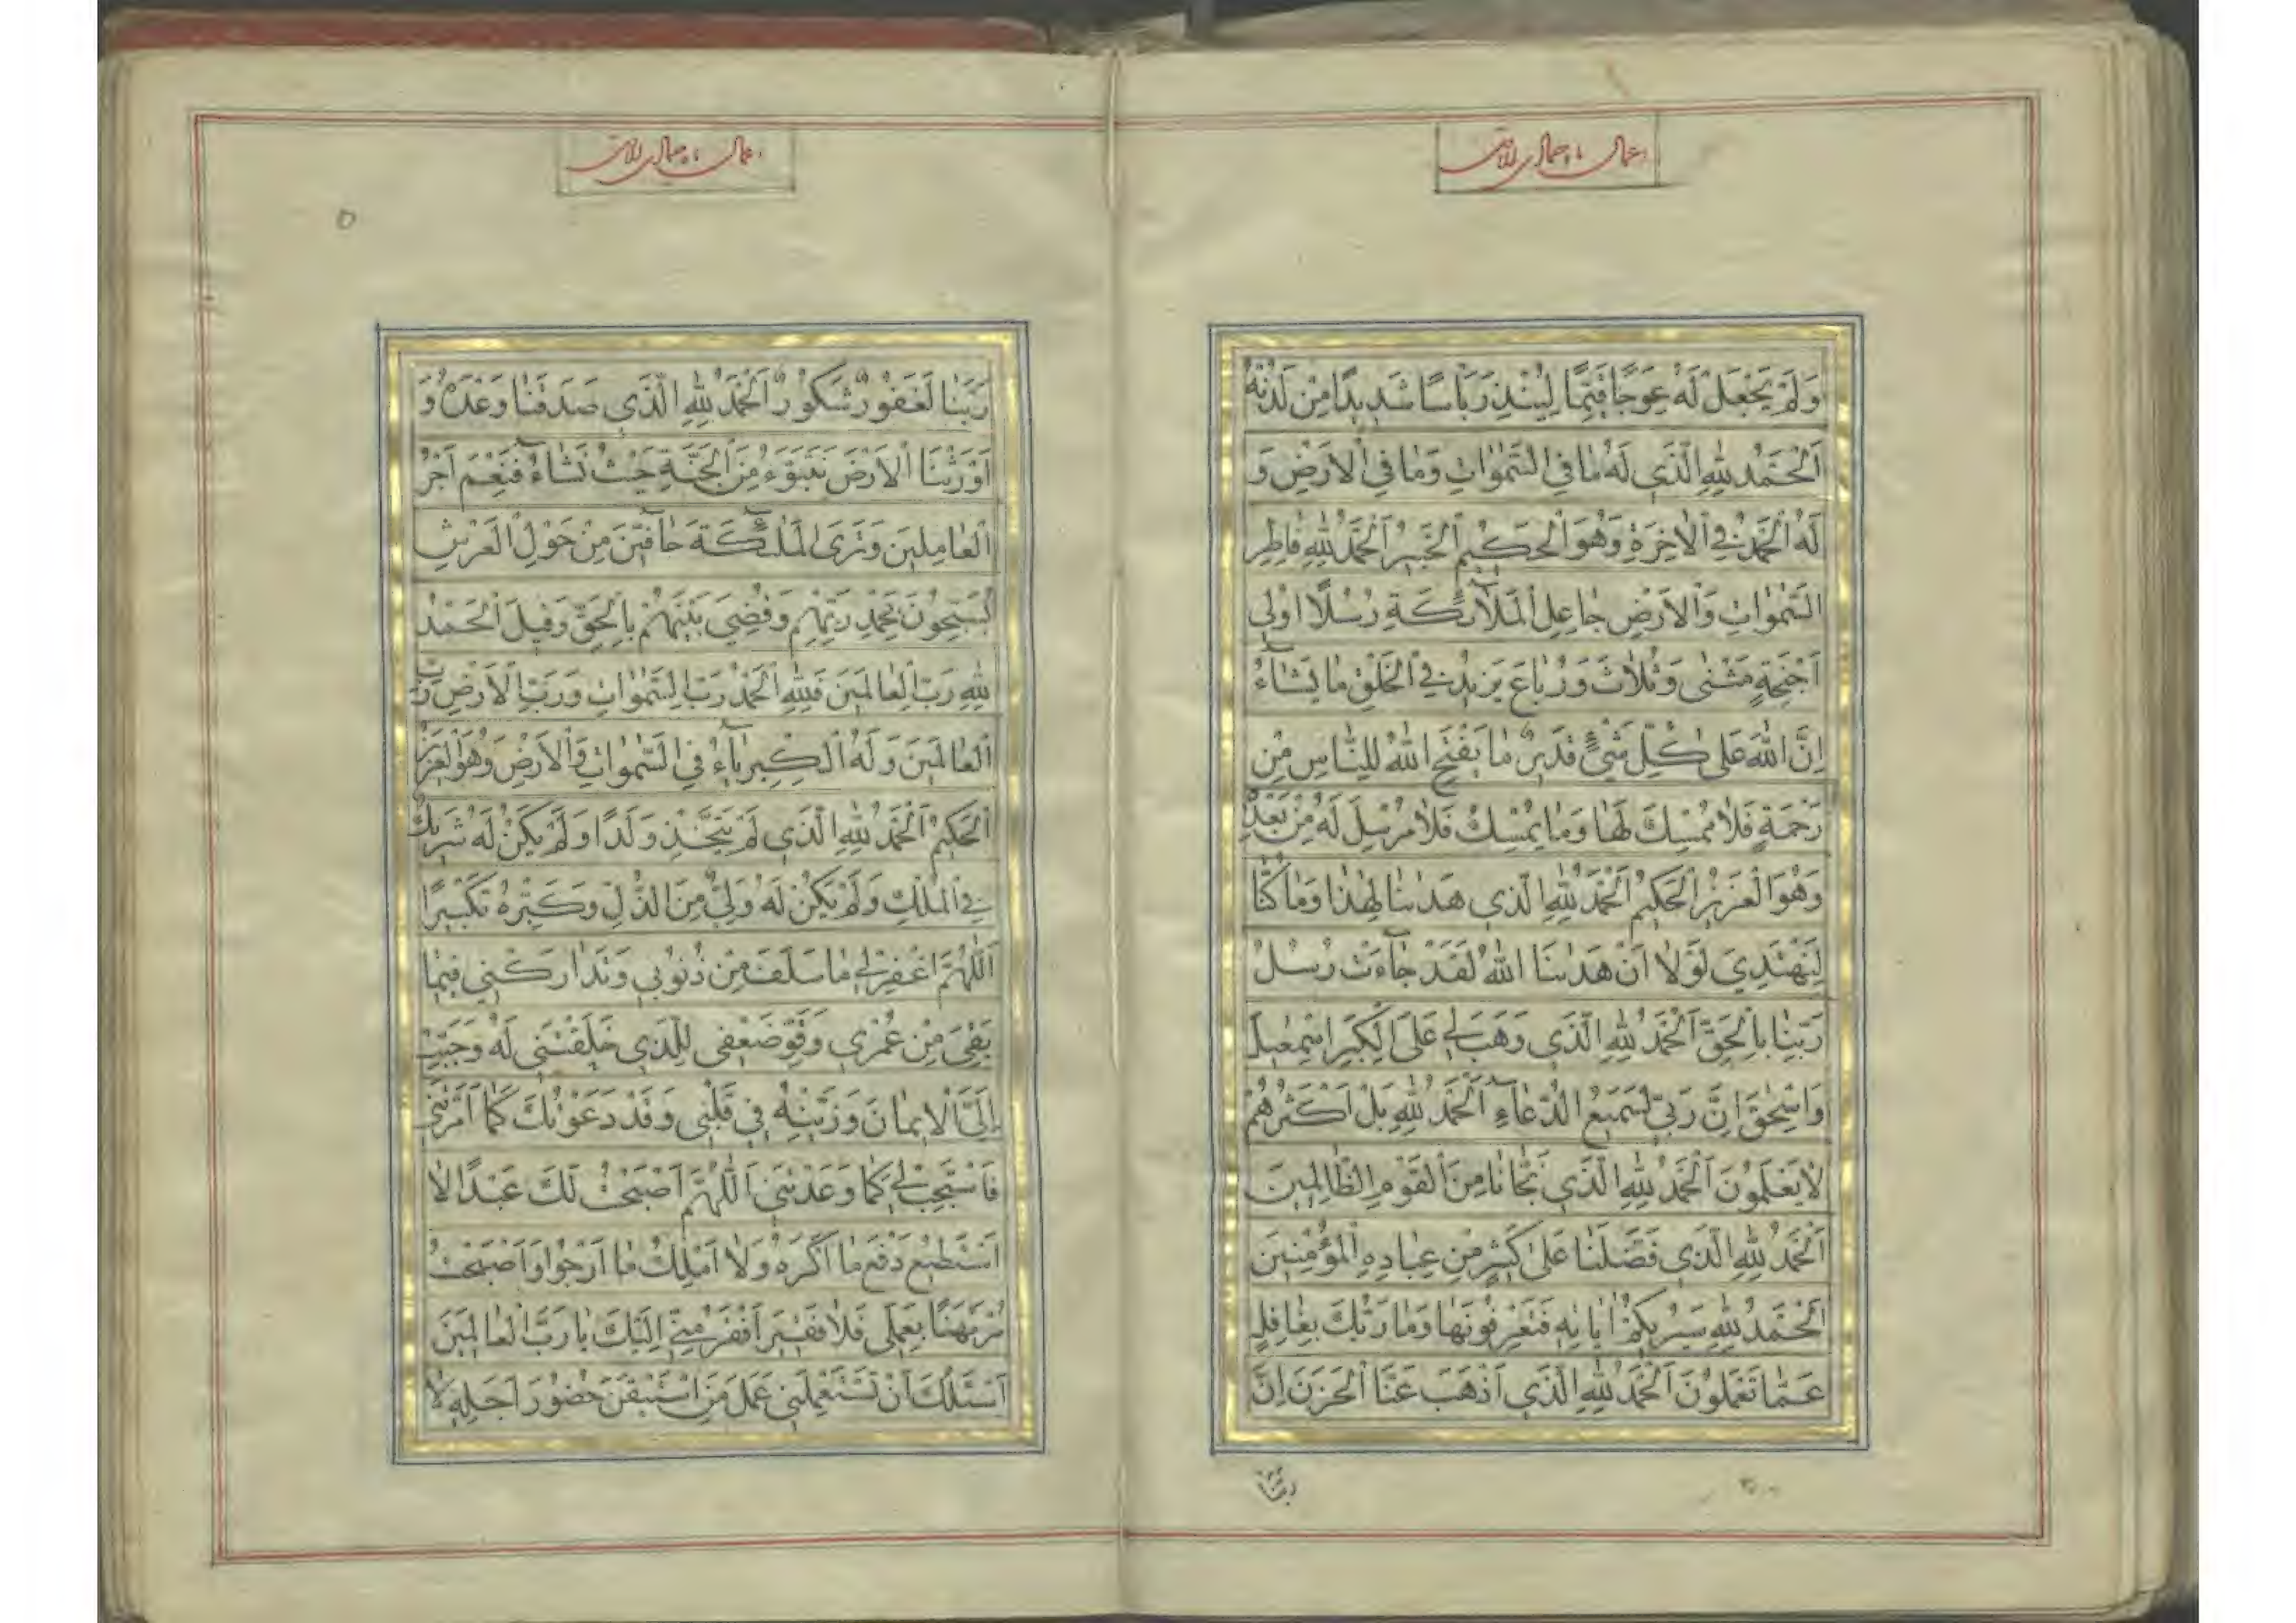 اعمال ماه جمادی الاخر
وَلَمْ يَجْعَلْ لَهُ عِوَجًا قَيِّمًا لِيُنْذِرَ بَأْسًا شَدِيدًا مِنْ لَدُنْهُ
اَلْحَمْدُ لِلّٰهِ الَّذِي لَهُ مَا فِي السَّمٰوَاتِ وَمَا فِي الْاَرْضِ وَ
لَهُ الْحَمْدُ فِي الْاٰخِرَةِ وَهُوَ الْحَكِيمُ الْخَبِيرُ اَلْحَمْدُ لِلّٰهِ فَاطِرِ
السَّمٰوَاتِ وَالْاَرْضِ جَاعِلِ الْمَلَآئِكَةِ رُسُلًا اُولِي
اَجْنِحَةٍ مَثْنٰى وَثُلَاثَ وَرُبَاعَ يَزِيدُ فِي الْخَلْقِ مَا يَشَآءُ
اِنَّ اللّٰهَ عَلٰى كُلِّ شَيْءٍ قَدِيرٌ مَا يَفْتَحِ اللّٰهُ لِلنَّاسِ مِنْ
رَحْمَةٍ فَلَا مُمْسِكَ لَهَا وَمَا يُمْسِكْ فَلَا مُرْسِلَ لَهُ مِنْ بَعْدِهِ
وَهُوَ الْعَزِيزُ الْحَكِيمُ اَلْحَمْدُ لِلّٰهِ الَّذِي هَدٰينَا لِهٰذَا وَمَا كُنَّا
لِنَهْتَدِيَ لَوْلَا اَنْ هَدٰينَا اللّٰهُ لَقَدْ جَآءَتْ رُسُلُ
رَبِّنَا بِالْحَقِّ اَلْحَمْدُ لِلّٰهِ الَّذِي وَهَبَ لِي عَلَى الْكِبَرِ اِسْمٰعِيلَ
وَاِسْحٰقَ اِنَّ رَبِّي لَسَمِيعُ الدُّعَآءِ اَلْحَمْدُ لِلّٰهِ بَلْ اَكْثَرُهُمْ
لَا يَعْلَمُونَ اَلْحَمْدُ لِلّٰهِ الَّذِي نَجَّانَا مِنَ الْقَوْمِ الظَّالِمِينَ
اَلْحَمْدُ لِلّٰهِ الَّذِي فَضَّلَنَا عَلٰى كَثِيرٍ مِنْ عِبَادِهِ الْمُؤْمِنِينَ
اَلْحَمْدُ لِلّٰهِ سَيُرِيكُمْ اٰيَاتِهِ فَتَعْرِفُونَهَا وَمَا رَبُّكَ بِغَافِلٍ
عَمَّا تَعْمَلُونَ اَلْحَمْدُ لِلّٰهِ الَّذِي اَذْهَبَ عَنَّا الْحَزَنَ اِنَّ
ربّنا
اعمال ماه جمادی الاخر
۵
رَبَّنَا لَغَفُورٌ شَكُورٌ اَلْحَمْدُ لِلّٰهِ الَّذِي صَدَقَنَا وَعْدَهُ وَ
اَوْرَثَنَا الْاَرْضَ نَتَبَوَّءُ مِنَ الْجَنَّةِ حَيْثُ نَشَآءُ فَنِعْمَ اَجْرُ
الْعَامِلِينَ وَتَرَى الْمَلٰٓئِكَةَ حَآفِّينَ مِنْ حَوْلِ الْعَرْشِ
يُسَبِّحُونَ بِحَمْدِ رَبِّهِمْ وَقُضِيَ بَيْنَهُمْ بِالْحَقِّ وَقِيلَ الْحَمْدُ
لِلّٰهِ رَبِّ الْعَالَمِينَ فَلِلّٰهِ الْحَمْدُ رَبِّ السَّمٰوَاتِ وَرَبِّ الْاَرْضِ رَبِّ
الْعَالَمِينَ وَلَهُ الْكِبْرِيَآءُ فِي السَّمٰوَاتِ وَالْاَرْضِ وَهُوَ الْعَزِيزُ
الْحَكِيمُ اَلْحَمْدُ لِلّٰهِ الَّذِي لَمْ يَتَّخِذْ وَلَدًا وَلَمْ يَكُنْ لَهُ شَرِيكٌ
فِي الْمُلْكِ وَلَمْ يَكُنْ لَهُ وَلِيٌّ مِنَ الذُّلِّ وَكَبِّرْهُ تَكْبِيرًا
اَللّٰهُمَّ اغْفِرْ لِي مَا سَلَفَ مِنْ ذُنُوبِي وَتَدَارَكْنِي فِيمَا
بَقِيَ مِنْ عُمْرِي وَقَوِّ ضَعْفِي لِلَّذِي خَلَقْتَنِي لَهُ وَحَبِّبْ
اِلَيَّ الْاِيمَانَ وَزَيِّنْهُ فِي قَلْبِي وَقَدْ دَعَوْتُكَ كَمَا اَمَرْتَنِي
فَاسْتَجِبْ لِي كَمَا وَعَدْتَنِي اَللّٰهُمَّ اَصْبَحْتُ لَكَ عَبْدًا لَا
اَسْتَطِيعُ دَفْعَ مَا اَكْرَهُ وَلَا اَمْلِكُ مَا اَرْجُو وَاَصْبَحْتُ
مُرْتَهَنًا بِعَمَلِي فَلَا فَقِيرَ اَفْقَرُ مِنِّي اِلَيْكَ يَا رَبَّ الْعَالَمِينَ
اَسْئَلُكَ اَنْ تَسْتَعْمِلَنِي عَمَلَ مَنِ اسْتَيْقَنَ حُضُورَ اَجَلِهِ لَا